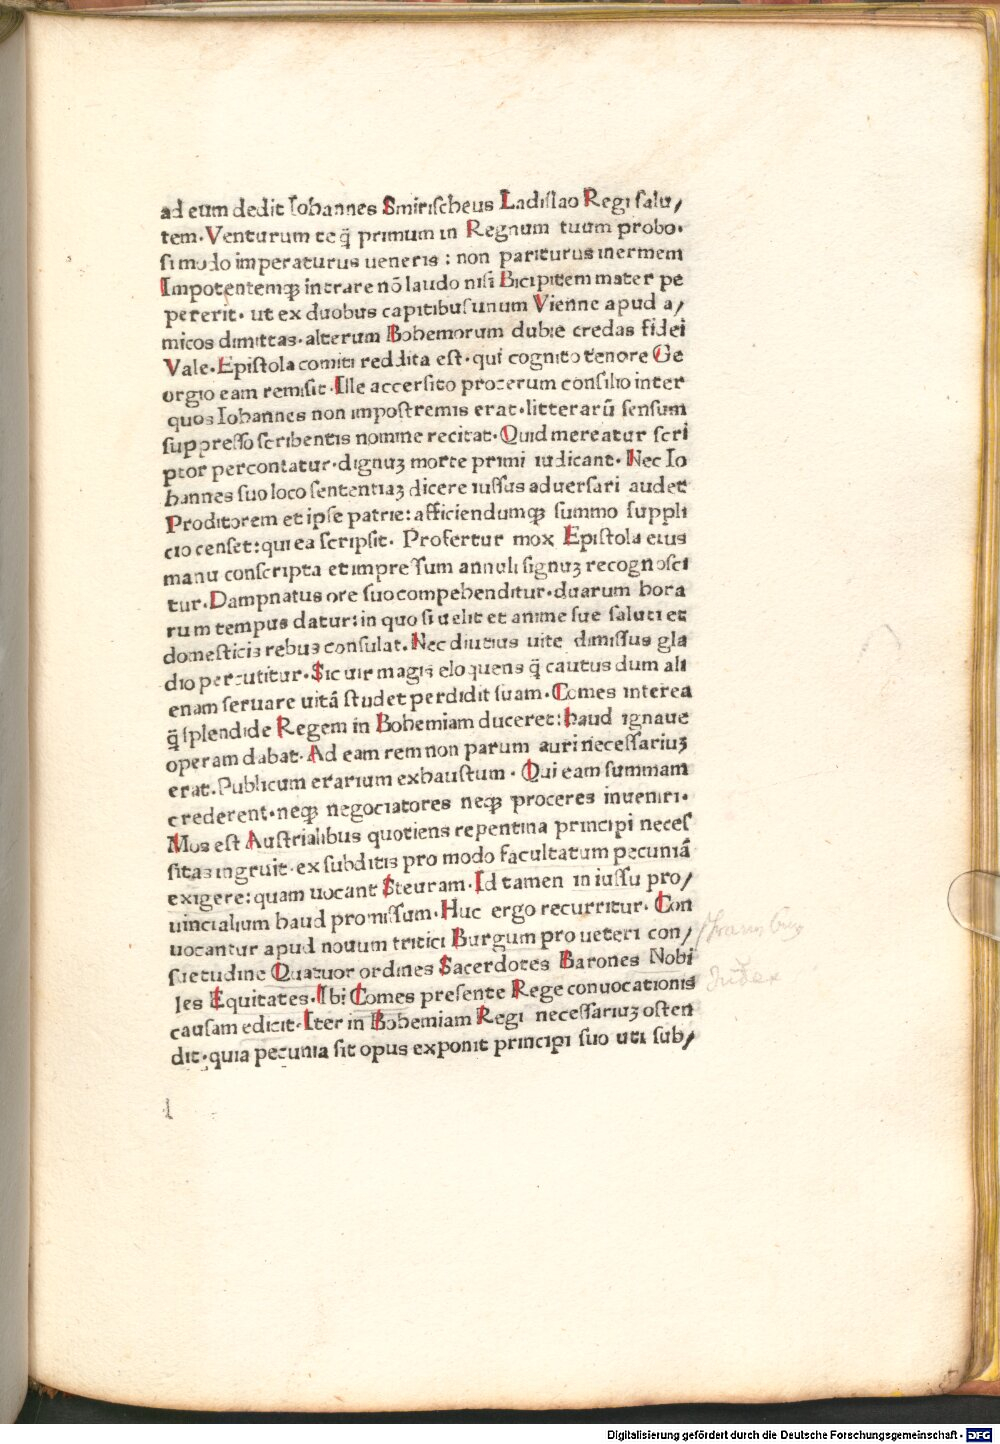 ad eum dedit Iohannes Smirischeus Ladislao Regi salu/
tem· Venturum te q̃ primum in Regnum tuum probo·
si modo imperaturus ueneris : non pariturus inermem
Impotentemqꝫ intrare nõ laudo nisi Bicipitem mater pe
pererit· ut ex duobus capitibus unum Vienne apud a/
micos dimittas· alterum Bohemorum dubie credas fidei
Vale· Epistola comiti reddita est· qui cognito tenore Ge
orgio eam remisit· Ille accersito procerum consilio inter
quos Iohannes non impostremis erat· litterarũ sensum
suppresso scribentis nomine recitat· Quid mereatur scri
ptor percontatur· dignuꝫ morte primi iudicant· Nec Io
hannes suo loco sententiaꝫ dicere iussus aduersari audet
Proditorem et ipse patrie: afficiendumqꝫ summo suppli
cio censet: qui ea scripsit· Profertur mox Epistola eius
manu conscripta et impressum annuli signuꝫ recognosci
tur· Dampnatus ore suo compehenditur· duarum hora
rum tempus datur: in quo si uelit et anime sue saluti et
domesticis rebus consulat· Nec diutius uite dimissus gla
dio percutitur· Sic uir magis eloquens q̃ cautus dum ali
enam seruare uitã studet perdidit suam· Comes interea
q̃ splendide Regem in Bohemiam duceret: haud ignaue
operam dabat· Ad eam rem non parum auri necessariuꝫ
erat. Publicum erarium exhaustum· Qui eam summam
crederent· neqꝫ negociatores neqꝫ proceres inueniri·
Mos est Austrialibus quotiens repentina principi neces
sitas ingruit· ex subditis pro modo facultatum pecuniã
exigere: quam uocant Steuram· Id tamen in iussu pro/
uincialium haud promissum· Huc ergo recurritur· Con
uocantur apud nouum tritici Burgum pro ueteri con/
suetudine Quatuor ordines Sacerdotes Barones Nobi
les Equitates· Ibi Comes presente Rege conuocationis
causam edicit· Iter in Bohemiam Regi necessariuꝫ osten
dit· quia pecunia sit opus exponit principi suo uti sub/
l
Digitalisierung gefördert durch die Deutsche Forschungsgemeinschaft - DFG